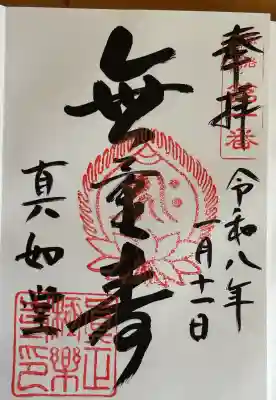 奉拝
令和八年
一月十一日
無量寿
真如堂